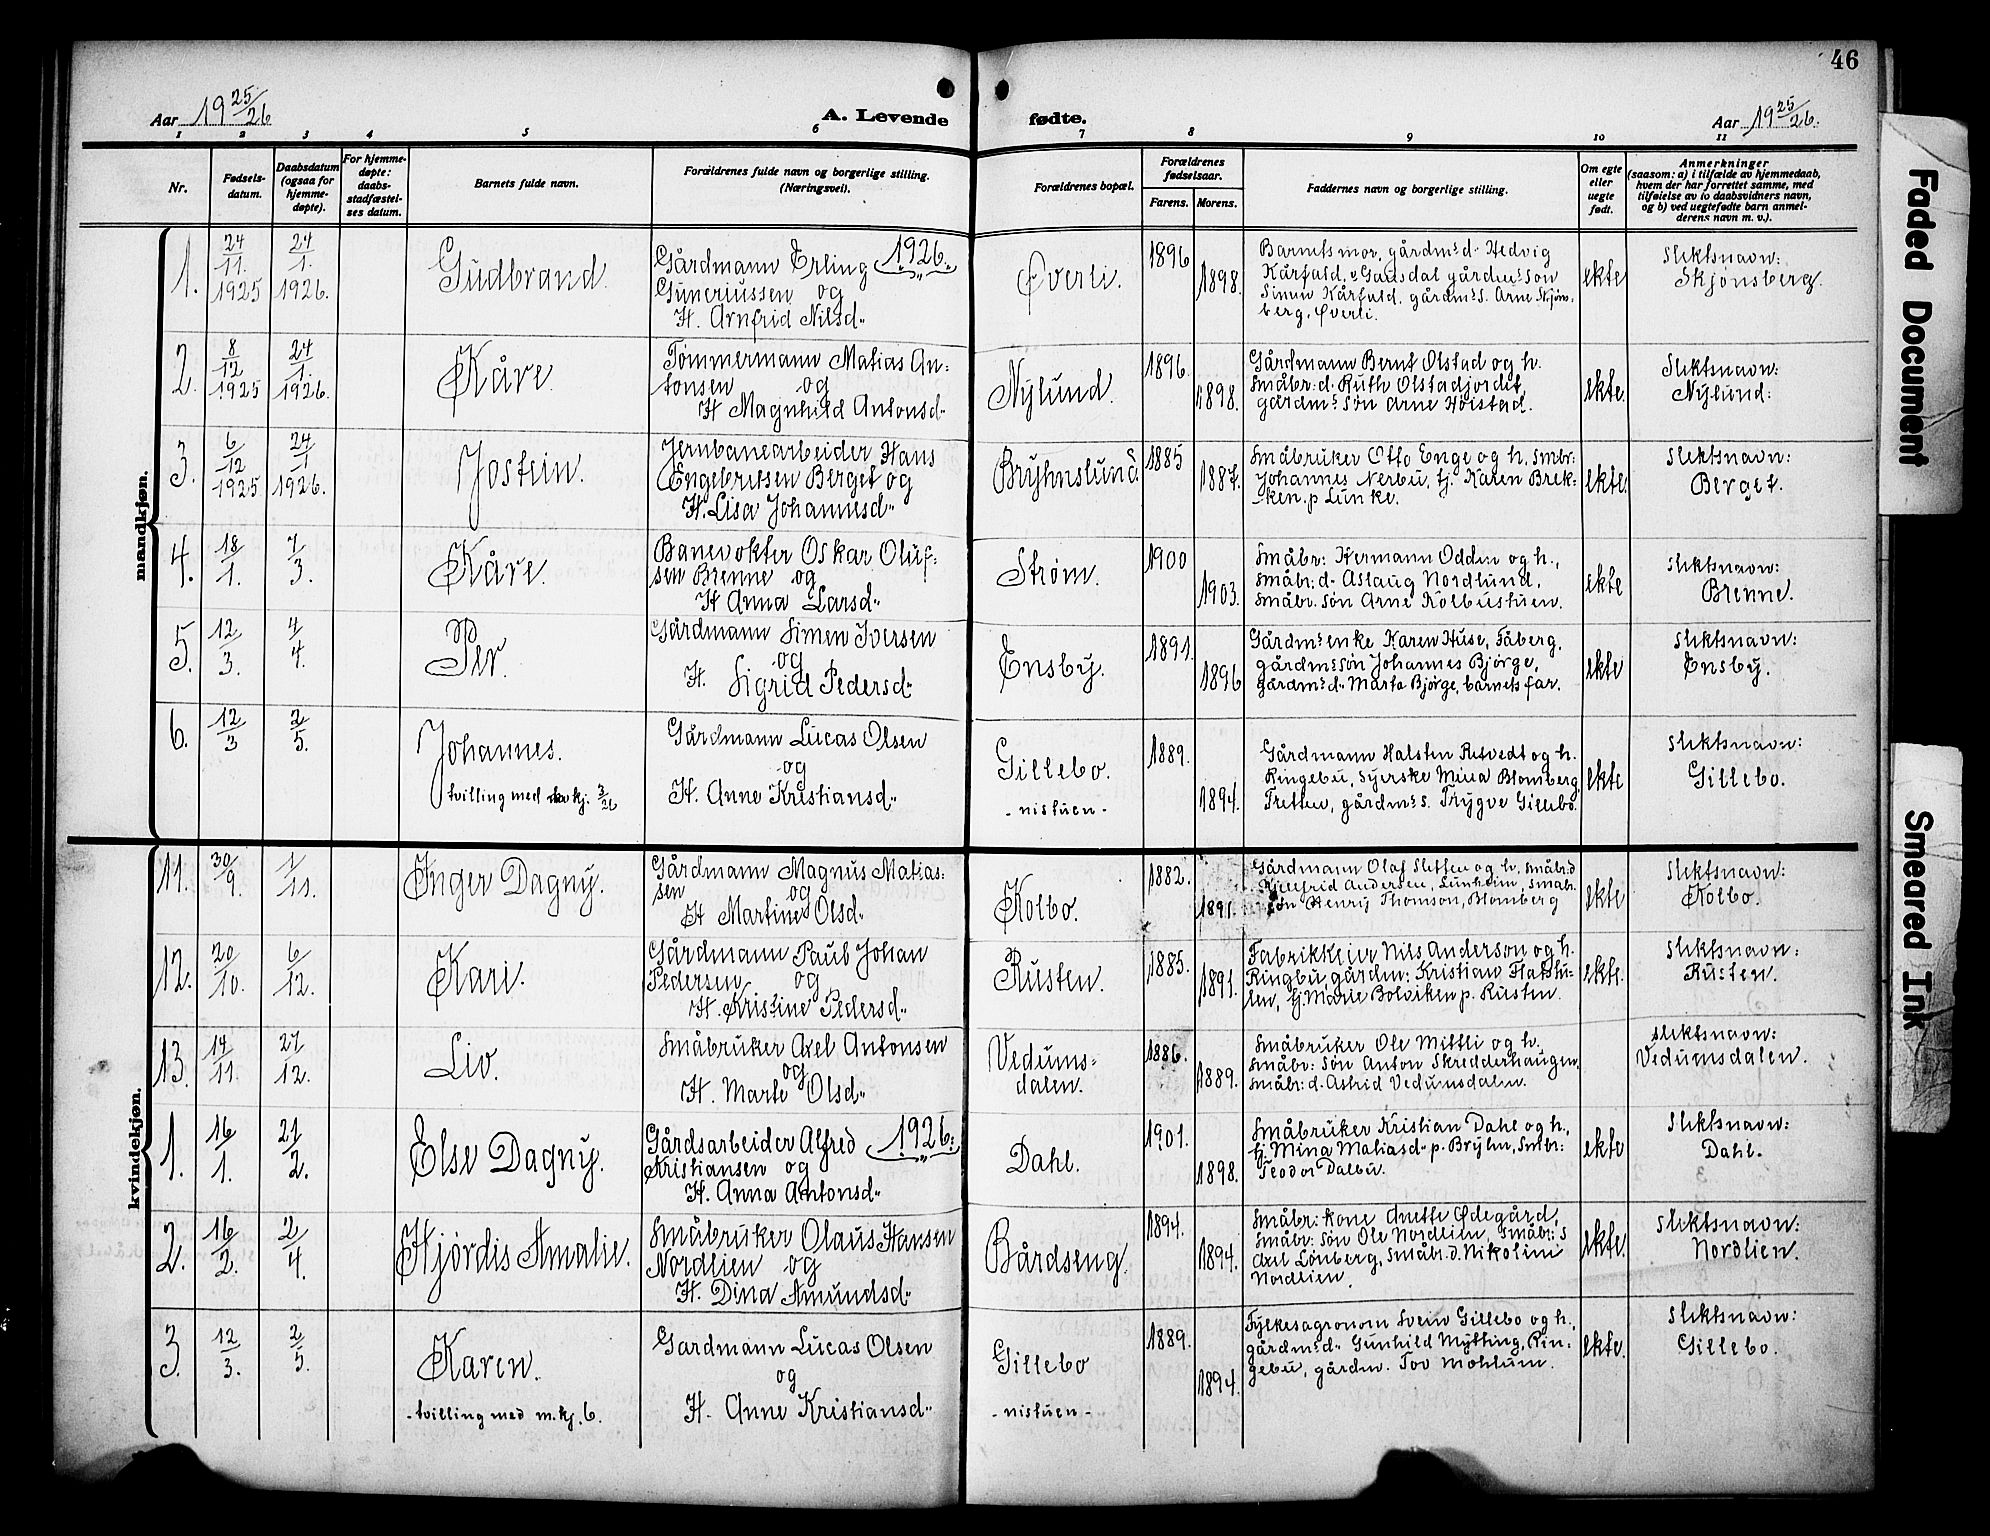 46
Aar 19 25/26
A. Levende
fødte.
Aar 19 25/26.
1 2 3 4 5 6 7 8 9 10 11
Nr.
Fødsels-
datum.
Daabsdatum
(ogsaa for
hjemme-
døpte).
For hjemme-
døpte:
daabs-
stadfæstel-
ses datum.
Barnets fulde navn.
Forældrenes fulde navn og borgerlige stilling.
(Næringsvei).
Forældrenes bopæl.
Forældrenes
fødselsaar.
Farens. Morens.
Faddernes navn og borgerlige stilling.
Om egte
eller
uegte
født.
Anmerkninger
(saasom: a) i tilfælde av hjemmedaab,
hvem der har forrettet samme, med
tilføielse av to daabsvidners navn,
og b) ved uegtefødte barn anmel-
derens navn m. v.).
mandkjøn.
1.
24/11.
1925
24/1.
1926.
Gudbrand.
Gårdmann Erling 1926.
Guneriussen og
H. Arnfrid Nilsd.
Øverli.
1896
1898.
Barnets mor, gårdm's d. Hedvig
Kårfald, gårdm's søn
Simen Kårfald, gårdm's s. Arne Skjøns-
berg, Øverli.
ekte
Slektsnavn:
Skjønsberg.
2.
8/12
1925
24/1.
1926.
Kåre.
Tømmermann Matias An-
tonsen og
H Magnhild Antonsd.
Nylund.
1896.
1898.
Gårdmann Bernt Olstad og h.
Småbr: d. Ruth Olstadjordet,
gårdm's søn Arne Høistad.
ekte.
Slektsnavn:
Nylund:
3.
6/12
1925
24/1
1926.
Jostein.
Jernbanearbeider Hans
Engebretsen Berget og
H. Lisa Johannesd.
Bryhnslund.
1885
1887.
Småbruker Otto Enge og h. Smbr:
Johannes Nerbu, tj. Karen Brek-
ken, p Lunke.
ekte.
Slektsnavn:
Berget.
4.
18/1.
7/3.
Kåre.
Banevokter Oskar Oluf-
sen Brenne og
H Anna Larsd.
Strøm.
1900
1903.
Småbr: Hermann Odden og h.,
småbr: d. Aslaug Nordlund,
småbr. søn Arne Kolbustuen.
ekte
Slektsnavn:
Brenne.
5.
12/3.
4/4.
Per.
Gårdmann Simen Iversen
og
H. Sigrid Pedersd.
Ensby.
1891.
1896
Gårdm's enke Karen Huse, Fåberg,
gårdm's søn Johannes Bjørge,
gårdm's d. Marta Bjørge, barnets far.
ekte
Slektsnavn:
Ensby.
6.
12/3
2/5.
Johannes.
tvilling med kv kj. 3/26
Gårdmann Lucas Olsen
og
H. Anne Kristiansd.
Gillebo.
- nistuen -
1889.
1894.
Gårdmann Halsten Retvedt og h.
Ringebu, Syerske Mina Blomberg,
Tretten, gårdm's s. Trygve Gillebo.
ekte
Slektsnavn:
Gillebo.
kvindekjøn.
11.
30/9.
1/11.
Inger Dagny.
Gårdmann Magnus Matias-
sen og
H Martine Olsd.
Kolbo.
1882.
1891.
Gårdmann Olaf Sletten og h. småbr. d
Andersen, Lunheim, småbr.
søn Henry Thomson, Blomberg
ekte
Slektsnavn:
Kolbo.
12.
20/10.
6/12.
Kari.
Gårdmann Paul Johan
Pedersen og
H. Kristine Pedersd.
Rusten.
1885.
1891.
Fabrikkeier Nils Anderson og h.
Ringbu, gårdm: Kristian Flatstu-
len, tj. Marie Bolviken p. Rusten.
ekte.
Slektsnavn:
Rusten.
13.
14/11.
27/12.
Liv.
Småbruker Axel Antonsen
og
H. Marte Olsd.
Vedums-
dalen.
1886.
1889.
Småbruker Ole Mittli og h.
Småbr: søn Anton Skredderhaugen,
småbr: d. Astrid Vedumsdalen.
Slektsnavn:
Vedumsdalen.
1.
16/1.
21/2.
Else Dagny.
Gårdsarbeider Alfred 1926:
Kristiansen og
H. Anna Antonsd.
Dahl.
1901.
1898.
Småbruker Kristian Dahl og h.,
tj. Mina Matiasd. p. Bryhn, Smbr:
Teodor Dalbu.
ekte
Slektsnavn:
Dahl.
2.
16/2.
2/4.
Hjørdis Amalie.
Småbruker Olaus Hansen
Nordlien og
H. Dina Amundsd.
Bårdseng.
1894.
1894.
Småbr: kone Anette Ødegård,
småbr: søn Ole Nordlien, småbr: s
Axel Lønberg, småbr. d. Nikoline
Nordlien.
ekte.
Slektsnavn:
Nordlien.
3.
12/3.
2/5.
Karen.
- tvilling med m. kj. 6.
Gardmann Lucas Olsen
og
H. Anne Kristiansd.
Gillebo
- nistuen -
1889.
1894.
Fylkesagronom Svein Gillebo og h.,
gårdm's d. Gunhild Mytting, Rin-
gebu, gårdm. Tov Mohlum.
ekte.
Slektsnavn:
Gillebo.
Faded Document
Smeared Ink